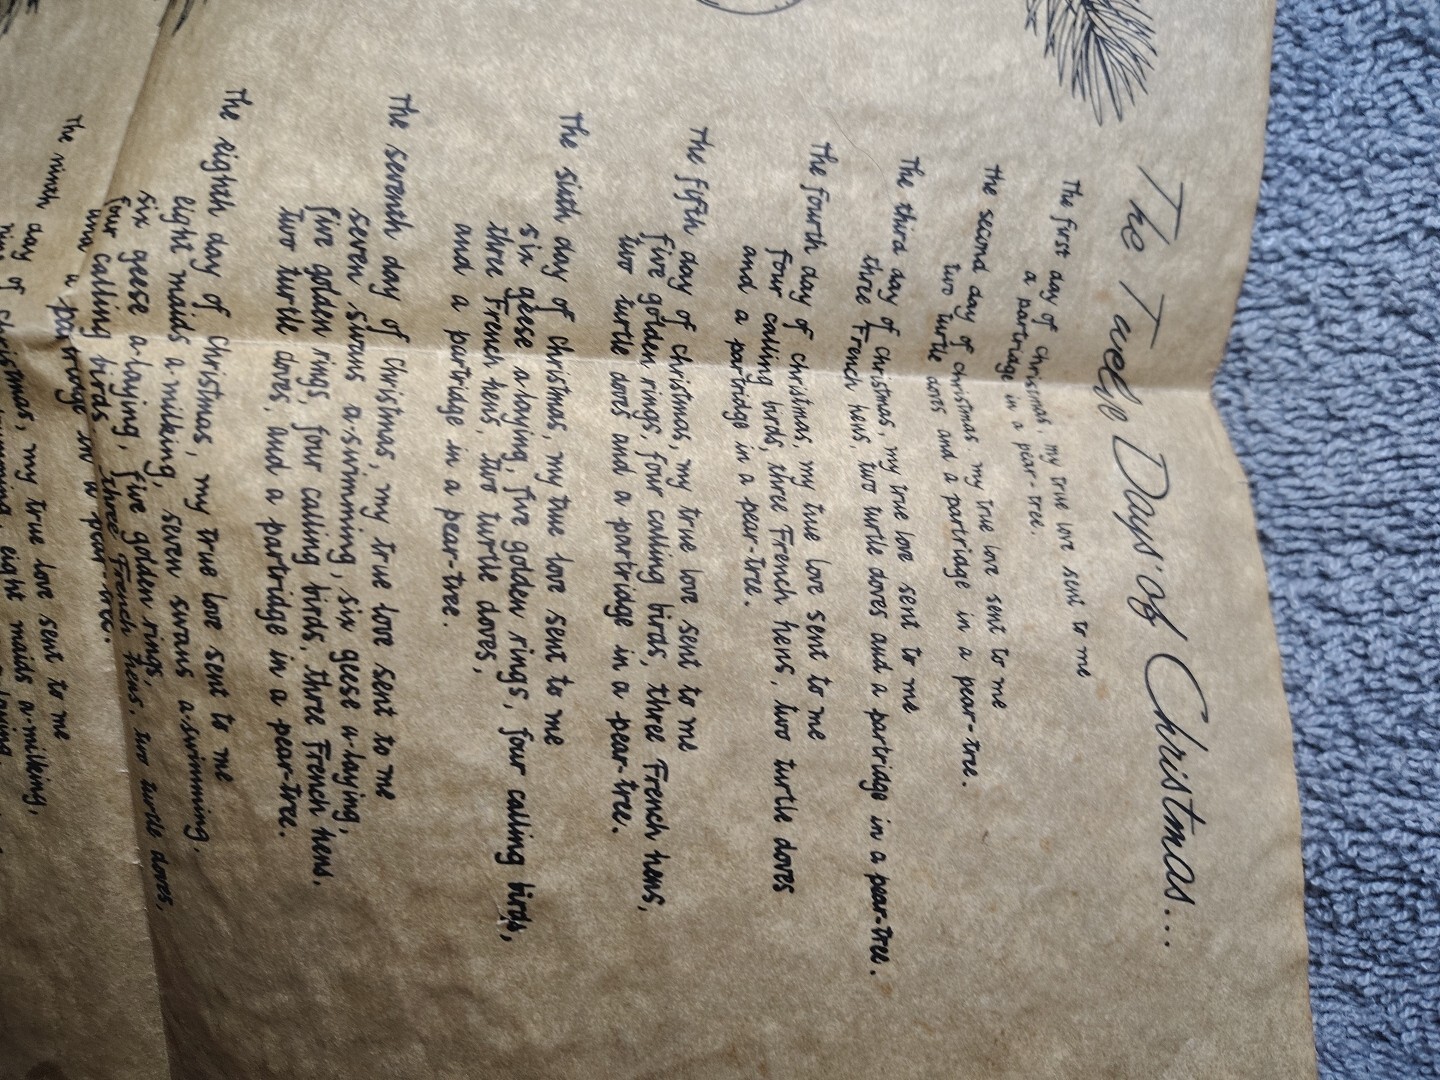 The Twelve Days of Christmas...
The first day of Christmas, my true love sent to me
a partridge in a pear-tree.
The second day of Christmas, my true love sent to me
two turtle doves and a partridge in a pear-tree.
The third day of Christmas, my true love sent to me
three French hens, two turtle doves and a partridge in a pear-tree.
The fourth day of Christmas, my true love sent to me
four calling birds, three French hens, two turtle doves
and a partridge in a pear-tree.
The fifth day of Christmas, my true love sent to me
five golden rings, four calling birds, three French hens,
two turtle doves and a partridge in a pear-tree.
The sixth day of Christmas, my true love sent to me
six geese a-laying, five golden rings, four calling birds,
three French hens, two turtle doves,
and a partridge in a pear-tree.
The seventh day of Christmas, my true love sent to me
seven swans a-swimming, six geese a-laying,
five golden rings, four calling birds, three French hens,
two turtle doves, and a partridge in a pear-tree.
The eighth day of Christmas, my true love sent to me
eight maids a-milking, seven swans a-swimming,
six geese a-laying, five golden rings,
four calling birds, three French hens, two turtle doves,
and a partridge in a pear-tree.
The ninth day of Christmas, my true love sent to me
eight maids a-milking,